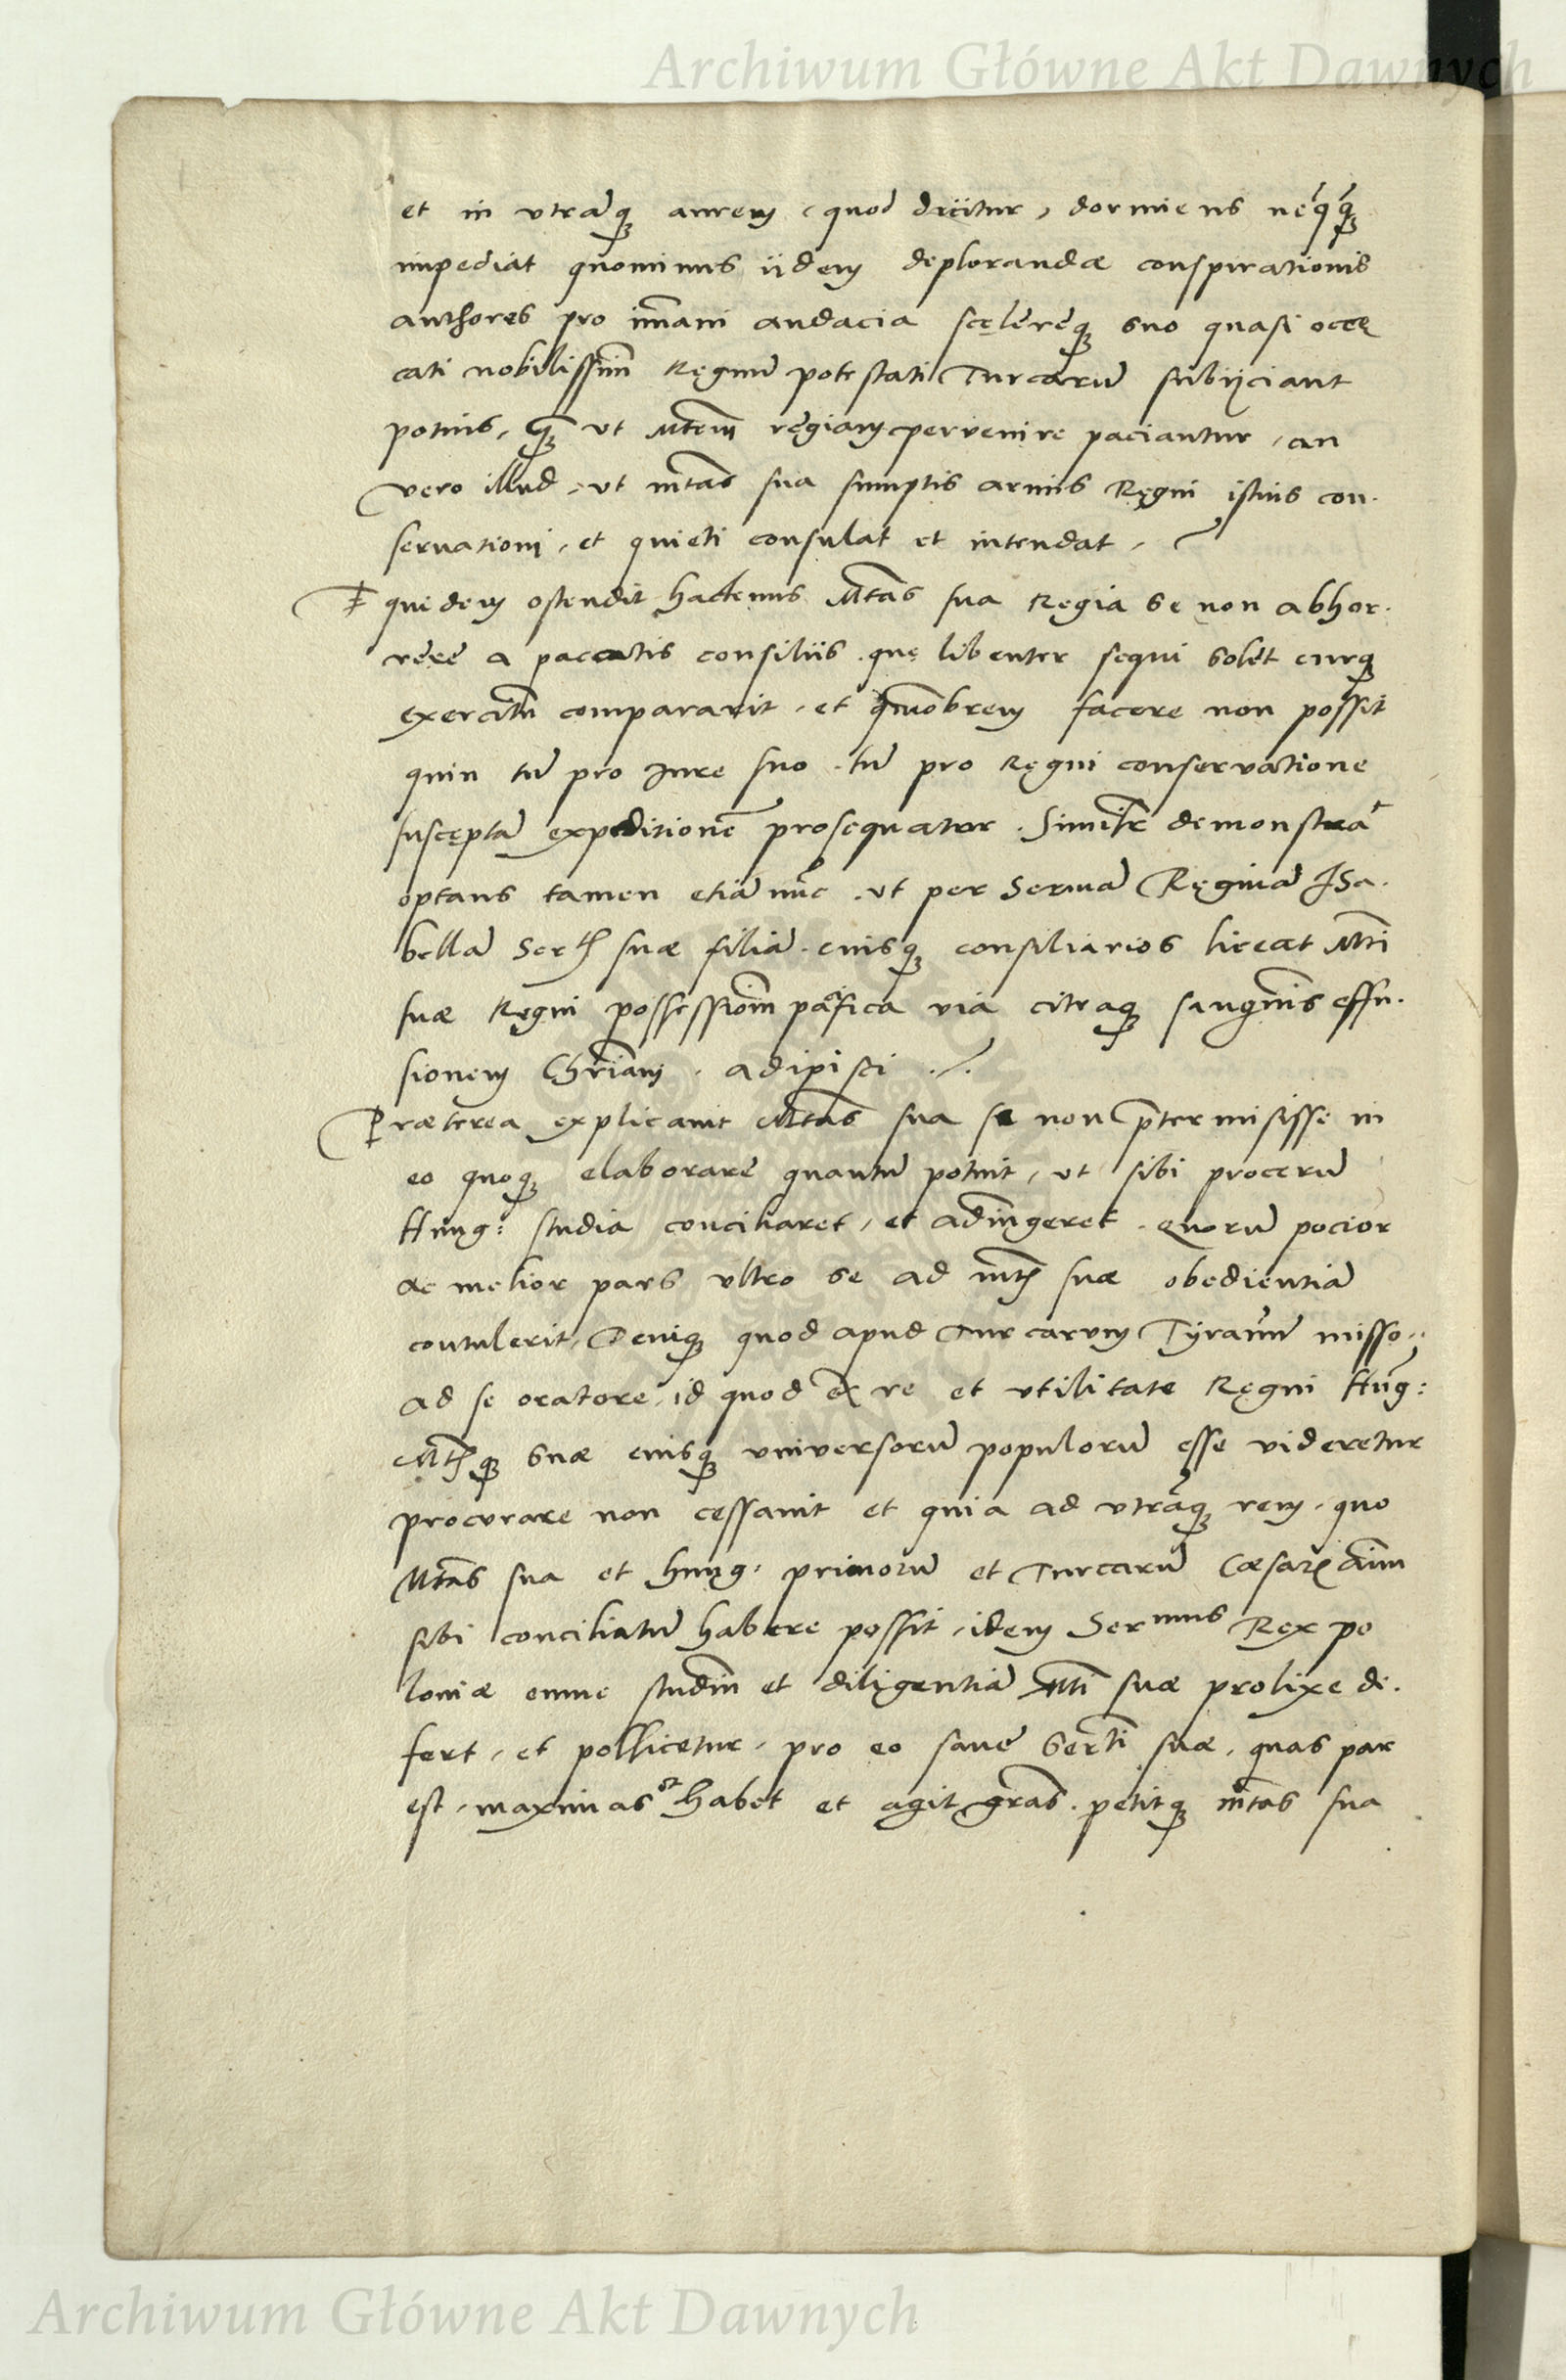 Archiwum Główne Akt Dawnych
et in vtrāq3 aurem, quod dicitur, dormiens
impediat quominus iidem deplorandæ conspirationis
authores pro im̄ani audacia scęlereq3 suo quasi occę
cati nobilissim̄ Ręgnū potestati Turcarū subijciant
potius, q̄3 vt Mtem̄ rėgiam pervenire paciantur, an
vero illud, vt mtās sua sumptis armis Ręgni istius con.
seruationi, et quieti consulat et intendat,
Equidem ostendit hactenus Mtās sua Regia se non abhor.
rere a paccatis consiliis quę libenter sequi solet curq3
exercitū compararit, et quāobrem facere non possit
quin tū pro Jure suo, tū pro Ręgni conservatione
suscęptā expeditionē prosequatur. Similr̄ demonstrāt
optans tamen etiā nūc, vt per Sermā Ręginā ISa.
bellā Sertis suæ filiā eiusq3 consiliarios liceat Mti
suæ Ręgni possessiom̄ pāfica via citraq3 sanguinis effu.
sionem Chrīam, adipisci ./.
Præterea explicauit Mtās sua se non p̄termisisse in
eo quoq3 elaborare quantū potuit, vt sibi procerū
Hung: studia conciliaret, et adiūngeret, quorū pocior
ac melior pars vltro se ad mtis suæ obedientiā
contulerit, Deniq3 quod apud Turcarum Tyrannū misso,,
ad se oratore, id quod ex re et vtilitate Ręgni Hūg:
Mtisq3 suæ eiusq3 vniversorū populorū esse videretur
procurare non cessauit et quia ad vtrāq3 rem, quo
Mtās sua et hung: primorū et Turcarū Cæsaris aīum
sibi conciliatū habere possit, idem Sermus Rex po
loniæ omne studiū et diligentiā Mti suæ prolixe di.
fert, et pollicetur, pro eo sane Serti suæ, quas par
est, maximas et habet et agit grās. petitq3 mtās sua
Archiwum Główne Akt Dawnych